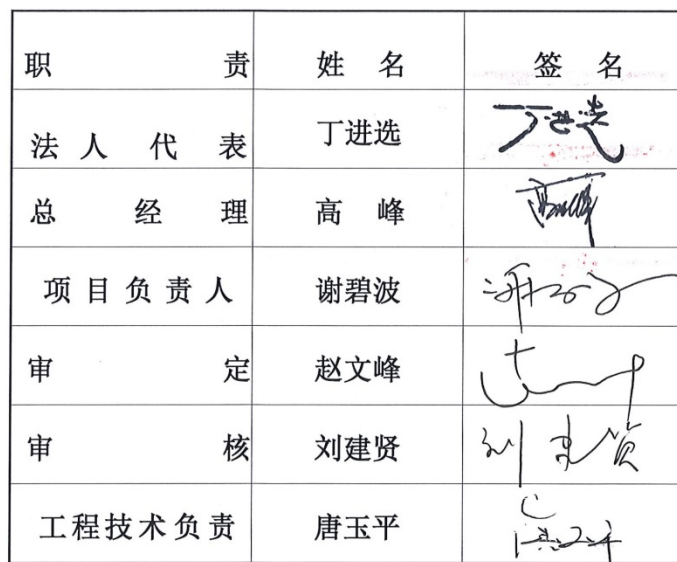 职责 姓名 签名
法人代表 丁进选 丁进选
总经理 高峰
项目负责人 谢碧波
审定 赵文峰
审核 刘建贤 刘建贤
工程技术负责 唐玉平